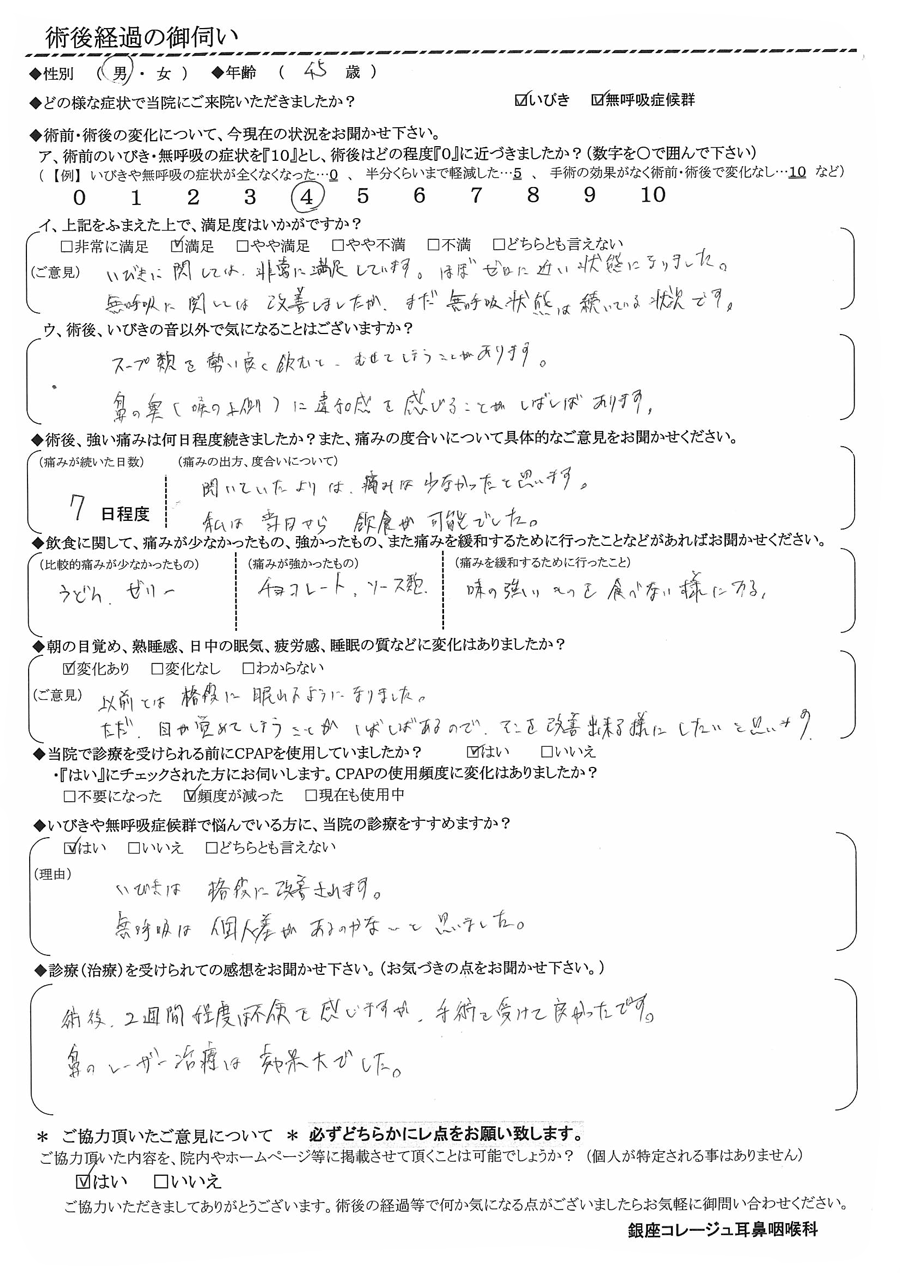 術後経過の御伺い
◆性別 （ 男 ・ 女 ） ◆年齢 （ 45 歳 ）
◆どの様な症状で当院にご来院いただきましたか？ ☑いびき ☑無呼吸症候群
◆術前・術後の変化について、今現在の状況をお聞かせ下さい。
ア、術前のいびき・無呼吸の症状を『10』とし、術後はどの程度『0』に近づきましたか？（数字を○で囲んで下さい）
（【例】 いびきや無呼吸の症状が全くなくなった…0 、 半分くらいまで軽減した…5 、 手術の効果がなく術前・術後で変化なし…10 など）
0 1 2 3 4 5 6 7 8 9 10
イ、上記をふまえた上で、満足度はいかがですか？
□非常に満足 ☑満足 □やや満足 □やや不満 □不満 □どちらとも言えない
（ご意見） いびきに関しては、非常に満足しています。ほぼゼロに近い状態になりました。
無呼吸に関しては改善しましたが、まだ無呼吸状態は続いている状況です。
ウ、術後、いびきの音以外で気になることはございますか？
スープ類を勢い良く飲むと、むせてしまうことがあります。
鼻の奥（喉の上側）に違和感を感じることがしばしばあります。
◆術後、強い痛みは何日程度続きましたか？また、痛みの度合いについて具体的なご意見をお聞かせください。
（痛みが続いた日数） （痛みの出方、度合いについて）
聞いていたよりは、痛みは少なかったと思います。
7 日程度
私は当日から飲食が可能でした。
◆飲食に関して、痛みが少なかったもの、強かったもの、また痛みを緩和するために行ったことなどがあればお聞かせください。
（比較的痛みが少なかったもの） （痛みが強かったもの） （痛みを緩和するために行ったこと）
うどん、ゼリー チョコレート、ソース類 味の強いものを食べない様にする。
◆朝の目覚め、熟睡感、日中の眠気、疲労感、睡眠の質などに変化はありましたか？
☑変化あり □変化なし □わからない
（ご意見） 以前とは格段に眠れるようになりました。
ただ、目が覚めてしまうことがしばしばあるので、そこを改善出来る様にしたいと思います。
◆当院で診療を受けられる前にCPAPを使用していましたか？ ☑はい □いいえ
・『はい』にチェックされた方にお伺いします。CPAPの使用頻度に変化はありましたか？
□不要になった ☑頻度が減った □現在も使用中
◆いびきや無呼吸症候群で悩んでいる方に、当院の診療をすすめますか？
☑はい □いいえ □どちらとも言えない
（理由）
いびきは格段に改善されます。
無呼吸は個人差があるのかな〜と思いました。
◆診療（治療）を受けられての感想をお聞かせ下さい。（お気づきの点をお聞かせ下さい。）
術後、2週間程度は不便を感じますが、手術を受けて良かったです。
鼻のレーザー治療は効果大でした。
＊ ご協力頂いたご意見について ＊ 必ずどちらかにレ点をお願い致します。
ご協力頂いた内容を、院内やホームページ等に掲載させて頂くことは可能でしょうか？ （個人が特定される事はありません）
☑はい □いいえ
ご協力いただきましてありがとうございます。術後の経過等で何か気になる点がございましたらお気軽に御問い合わせください。
銀座コレージュ耳鼻咽喉科